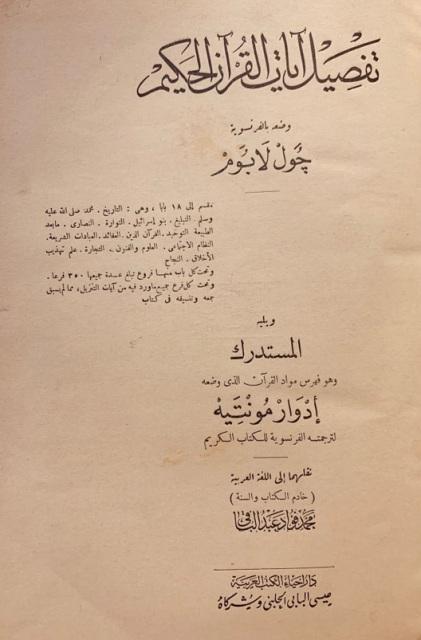 تفصيل آيات القرآن الحكيم
وضعه بالفرنسوية
چُول لَابُوم
مقسم إلى ١٨ بابا ، وهى : التاريخ . محمد صلى الله عليه
وسلم . التبليغ . بنو إسرائيل . التوراة . النصارى . مابعد
الطبيعة التوحيد . القرآن الدين . العقائد . العبادات الشريعة .
النظام الاجتماعى . العلوم والفنون . التجارة . علم تهذيب
الأخلاق . النجاح
وتحت كل باب منها فروع تبلغ عدة جميعها ٣٥٠ فرعا .
وتحت كل فرع جميع ماورد فيه من آيات التنزيل ، مما لم يسبق
جمعه وتنسيقه فى كتاب
ويليه
المستدرك
وهو فهرس مواد القرآن الذى وضعه
إدْوَار مُونْتِيه
لترجمته الفرنسوية للكتاب الكريم
نقلهما إلى اللغة العربية
( خادم الكتاب والسنة )
محمد فؤاد عبد الباقى
دار إحياء الكتب العربية
عيسى البابى الحلبى وشركاه